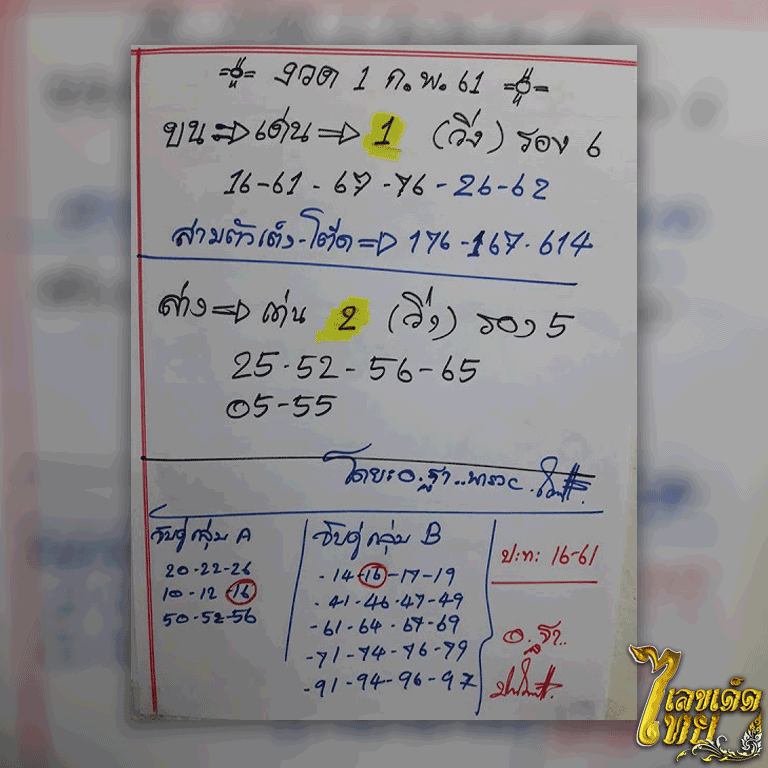 งวด 1 ก.พ. 61
บน => เด่น => 1 (วิ่ง) รอง 6
16-61-67-76-26-62
สามตัวเต็ง-โต๊ด => 176-167-614
ล่าง => เด่น 2 (วิ่ง) รอง 5
25-52-56-65
05-55
โดย: อ.ฐา..
จับคู่ กลุ่ม A
20-22-26
10-12-16
50-52-56
จับคู่ กลุ่ม B
-14-16-17-19
-41-46-47-49
-61-64-67-69
-71-74-76-79
-91-94-96-97
ป:ท: 16-61
อ.ฐา..
เลขเด็ด
ไทย